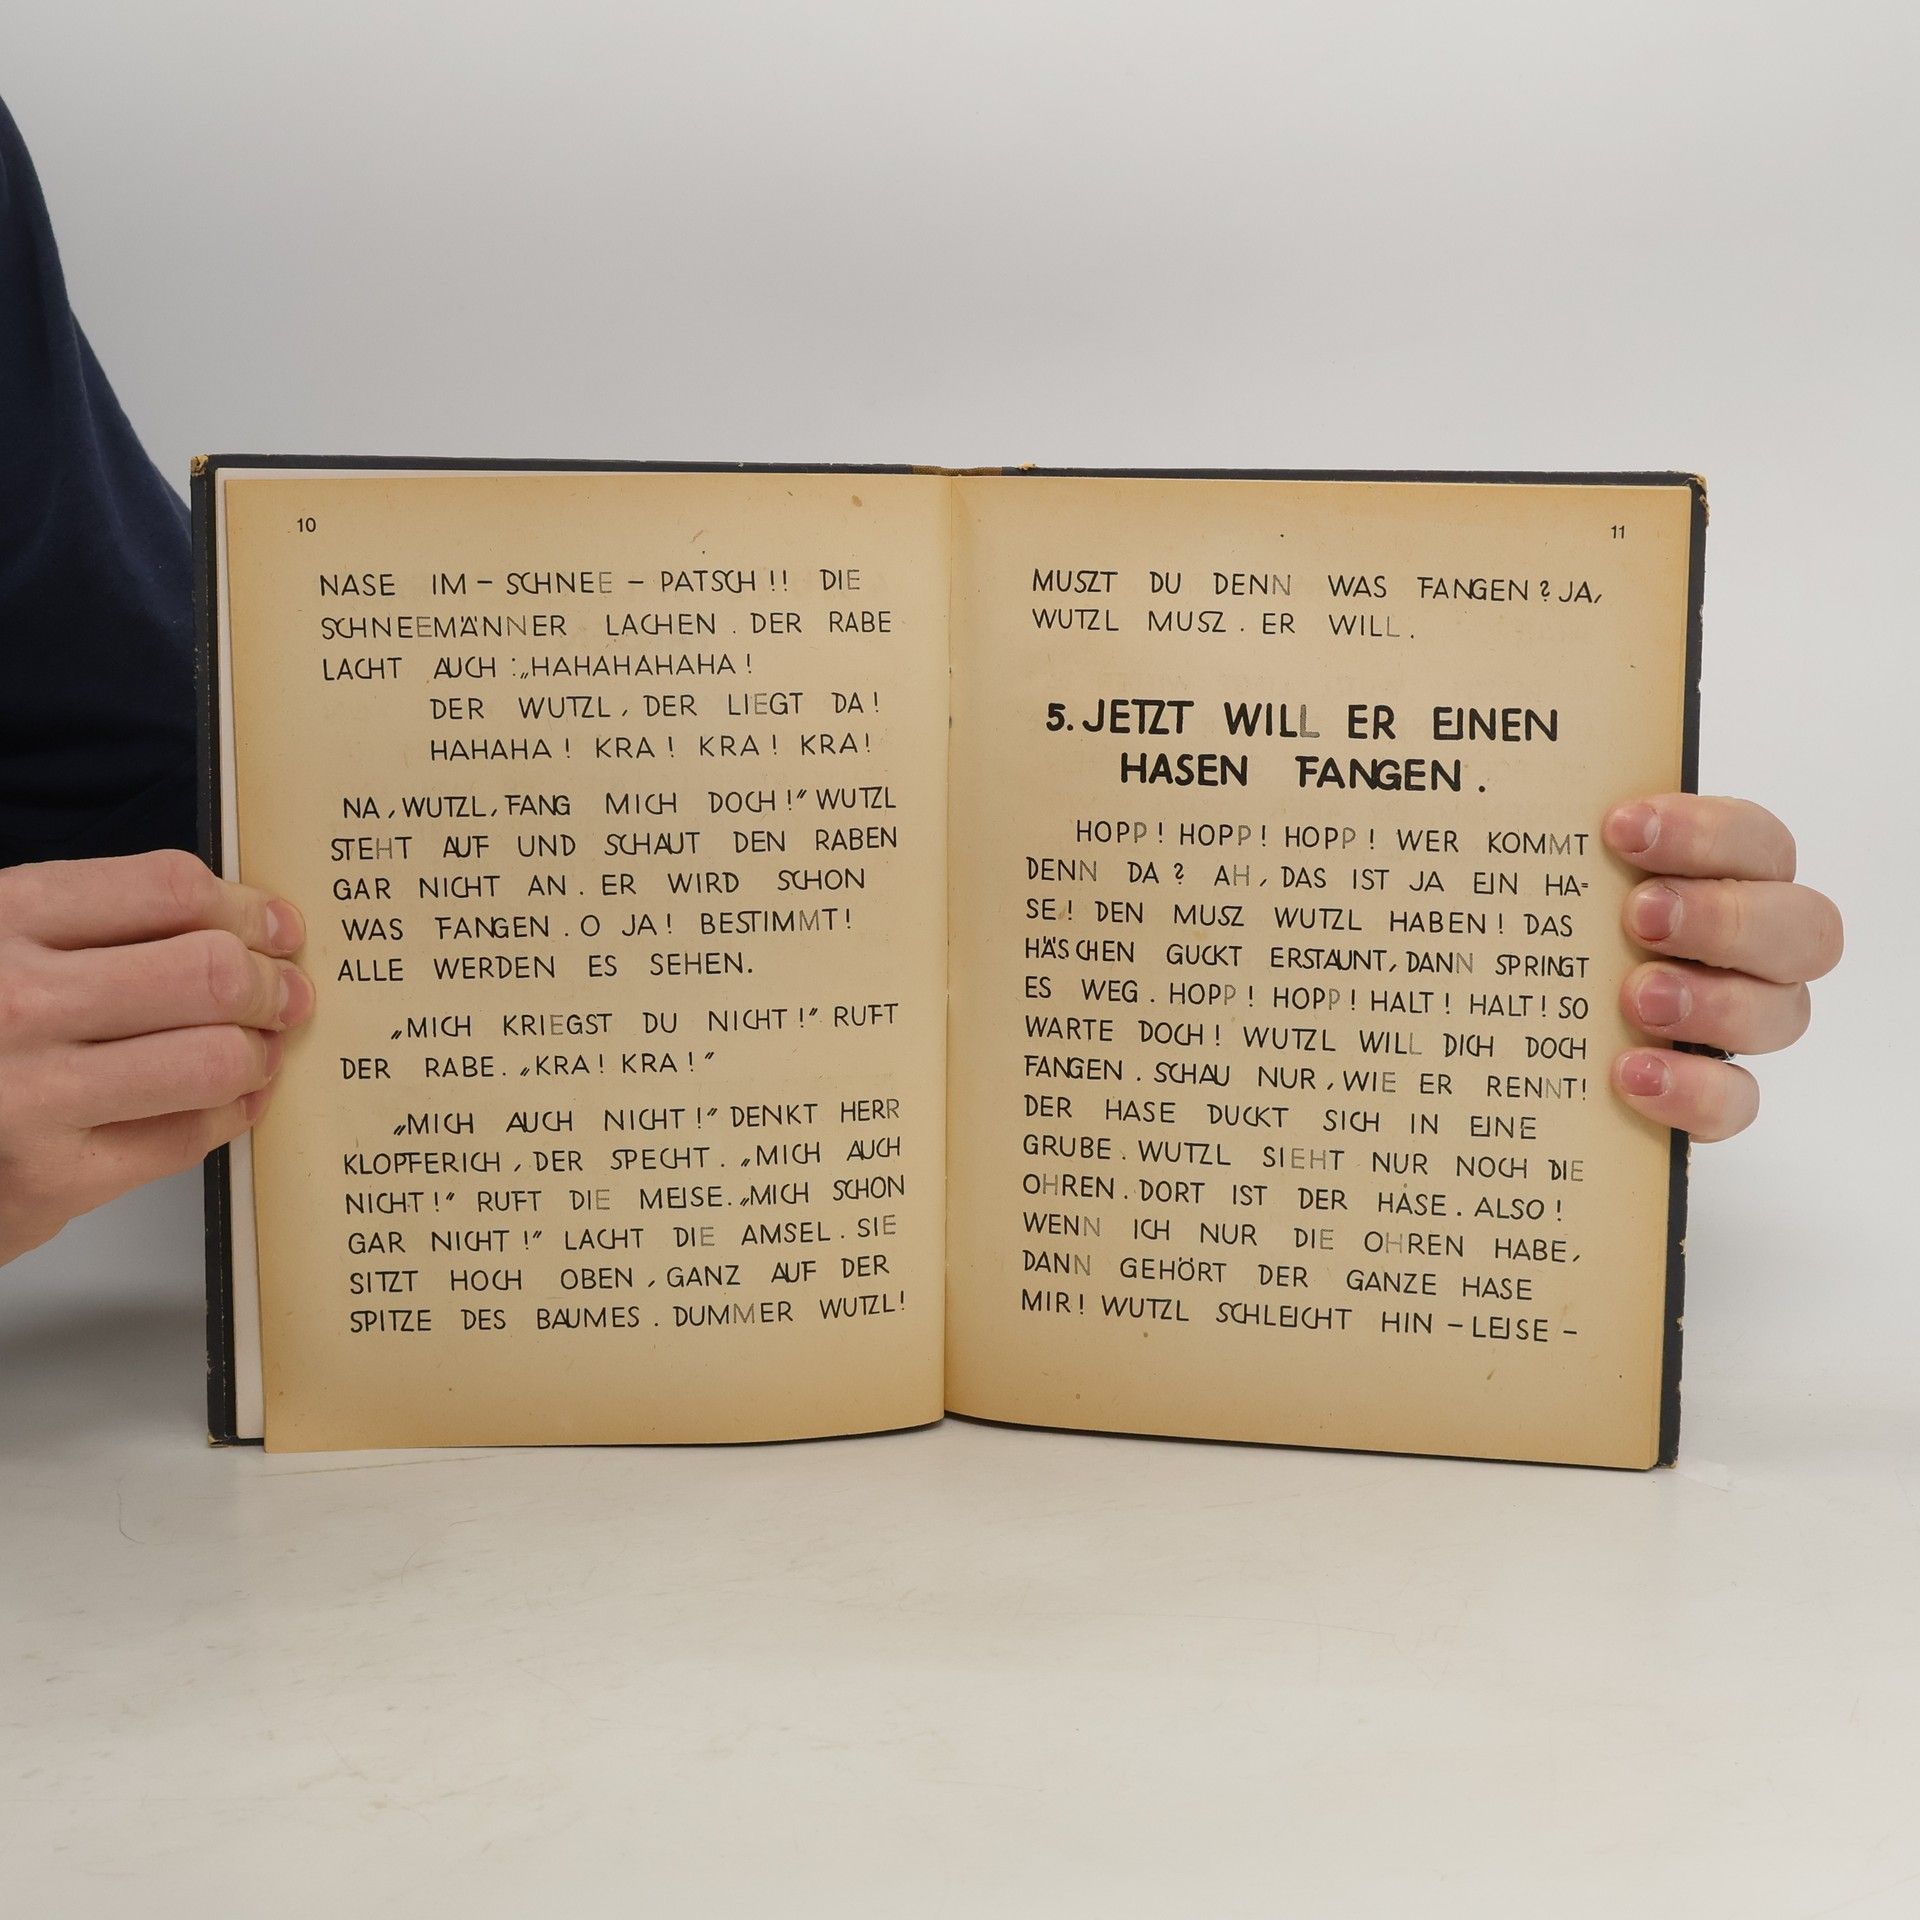 10
NASE IM – SCHNEE – PATSCH!! DIE
SCHNEEMÄNNER LACHEN. DER RABE
LACHT AUCH: „HAHAHAHAHA!
DER WUTZL, DER LIEGT DA!
HAHAHA! KRA! KRA! KRA!
NA, WUTZL, FANG MICH DOCH!" WUTZL
STEHT AUF UND SCHAUT DEN RABEN
GAR NICHT AN. ER WIRD SCHON
WAS FANGEN. O JA! BESTIMMT!
ALLE WERDEN ES SEHEN.
„MICH KRIEGST DU NICHT!" RUFT
DER RABE. „KRA! KRA!"
„MICH AUCH NICHT!" DENKT HERR
KLOPFERICH, DER SPECHT. „MICH AUCH
NICHT!" RUFT DIE MEISE. „MICH SCHON
GAR NICHT!" LACHT DIE AMSEL. SIE
SITZT HOCH OBEN, GANZ AUF DER
SPITZE DES BAUMES. DUMMER WUTZL!
11
MUSZT DU DENN WAS FANGEN? JA,
WUTZL MUSZ. ER WILL.
5. JETZT WILL ER EINEN
HASEN FANGEN.
HOPP! HOPP! HOPP! WER KOMMT
DENN DA? AH, DAS IST JA EIN HA=
SE! DEN MUSZ WUTZL HABEN! DAS
HÄSCHEN GUCKT ERSTAUNT, DANN SPRINGT
ES WEG. HOPP! HOPP! HALT! HALT! SO
WARTE DOCH! WUTZL WILL DICH DOCH
FANGEN. SCHAU NUR, WIE ER RENNT!
DER HASE DUCKT SICH IN EINE
GRUBE. WUTZL SIEHT NUR NOCH DIE
OHREN. DORT IST DER HASE. ALSO!
WENN ICH NUR DIE OHREN HABE,
DANN GEHÖRT DER GANZE HASE
MIR! WUTZL SCHLEICHT HIN – LEISE –